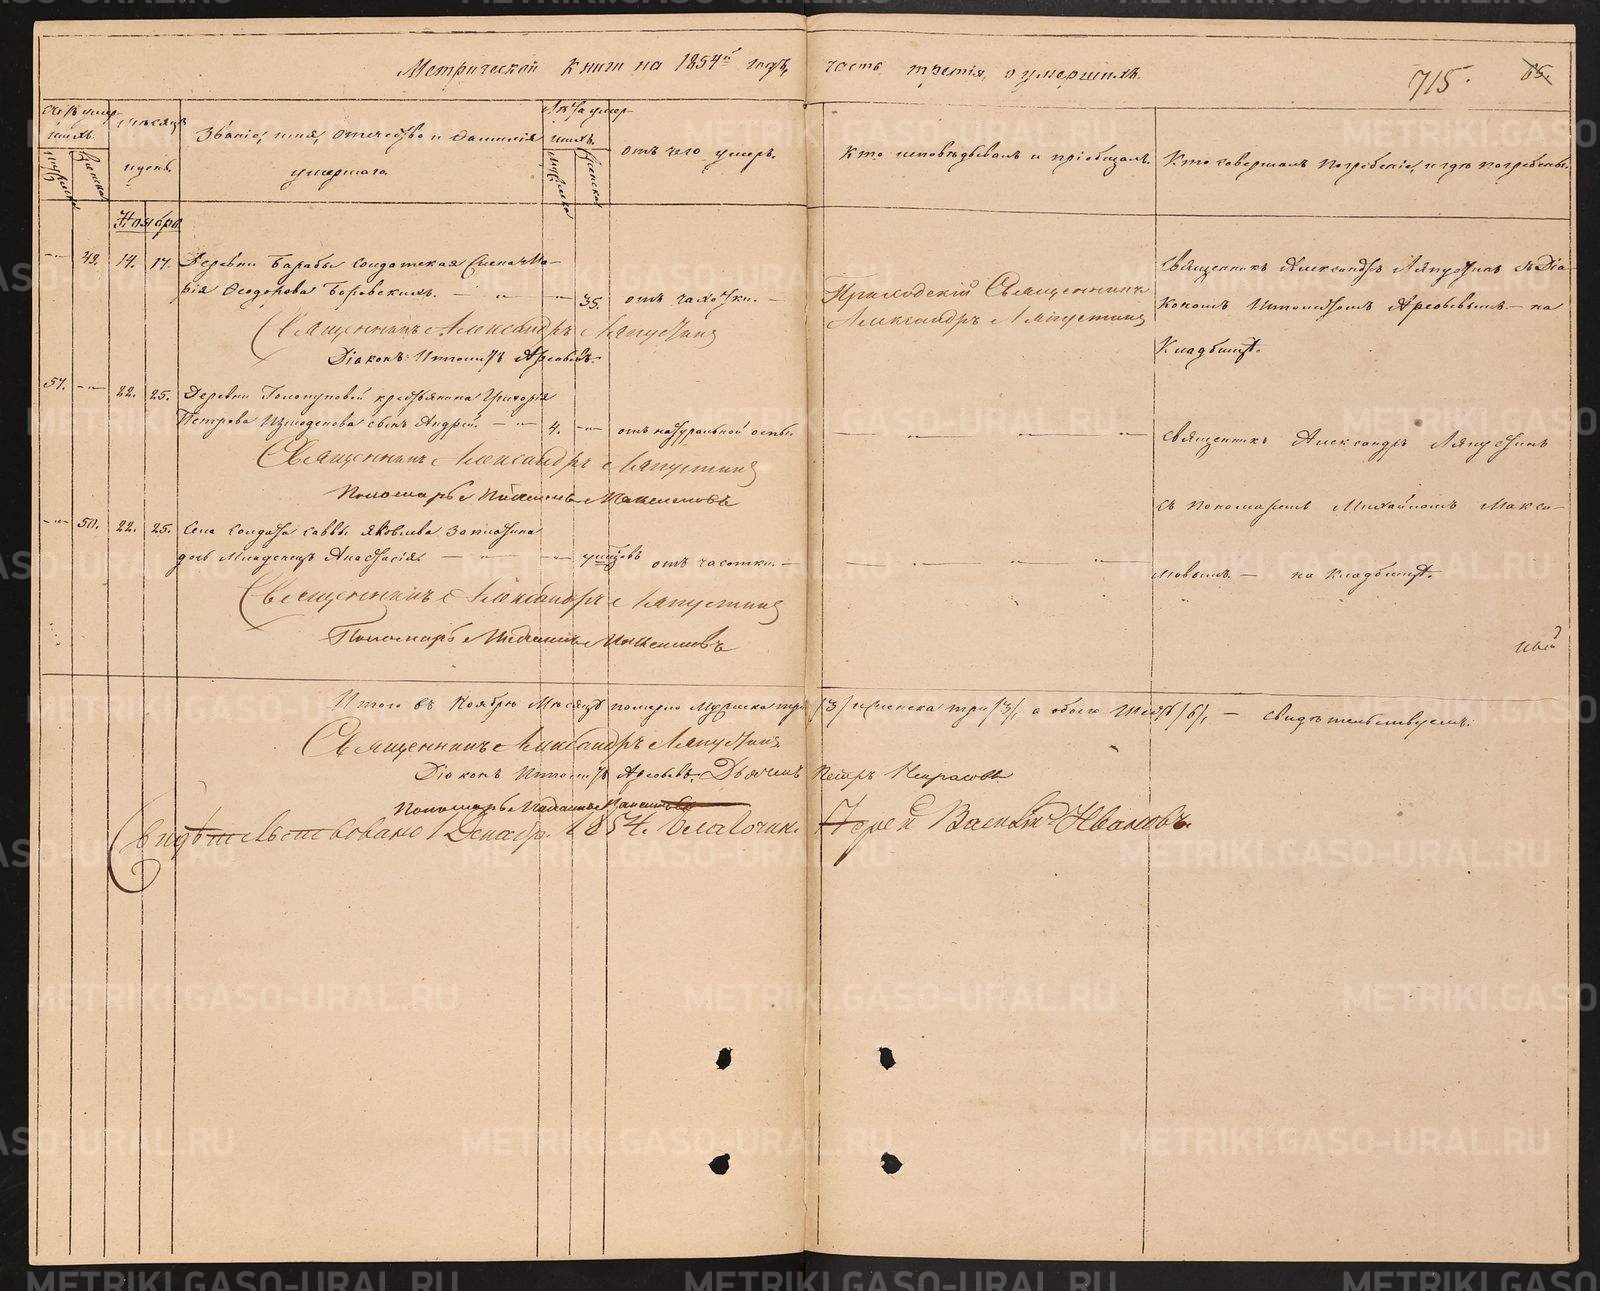 Метрической книги на 1854й годъ, часть третія, о умершихъ.
715.
65.
Счетъ умер-
шихъ.
Мѣсяцъ
и день.
Мужеска
Женска
Званіе, имя, отчество и фамилія
умершаго.
Лѣта умер-
шихъ.
Мужеска
Женска
отъ чего умеръ.
Кто исповѣдывалъ и пріобщалъ.
Кто совершалъ погребеніе, и гдѣ погребены.
Ноября
49. 14. 17. Деревни Барабы солдатская жена Ма-
рія Ѳеодорова Боровскихъ. 35. отъ чахотки.
Приходскій Священникъ
Александръ Ляпустинъ
Священникъ Александръ Ляпустинъ съ Діа-
кономъ Ипполитомъ Арефьевымъ на
Кладбищѣ.
Священникъ Александръ Ляпустинъ
Діаконъ Ипполитъ Арефьевъ.
57. 22. 25. Деревни крестьянина Григорія
Петрова Измоденова сынъ Андрей. 4. отъ натуральной оспы.
Священникъ Александръ Ляпустинъ
съ пономаремъ Михаиломъ Макси-
мовымъ. на кладбищѣ.
Священникъ Александръ Ляпустинъ
Пономарь Михаилъ Максимовъ
50. 22. 25. Села солдата Саввы Яковлева
дочь младенецъ Анастасія. отъ чесотки.
Священникъ Александръ Ляпустинъ
Пономарь Михаилъ Максимовъ
Итого въ Ноябрѣ Мѣсяцѣ померло Мужеска три /3/ и женска три /3/, а обоего шесть /6/, свидѣтельствуемъ:
Священникъ Александръ Ляпустинъ
Діаконъ Ипполитъ Арефьевъ. Дьячекъ Петръ Некрасовъ
Пономарь Михаилъ Максимовъ
Свидѣтельствовано 1 Декабр. 1854. Благочин. Іерей Василій Ивановъ.